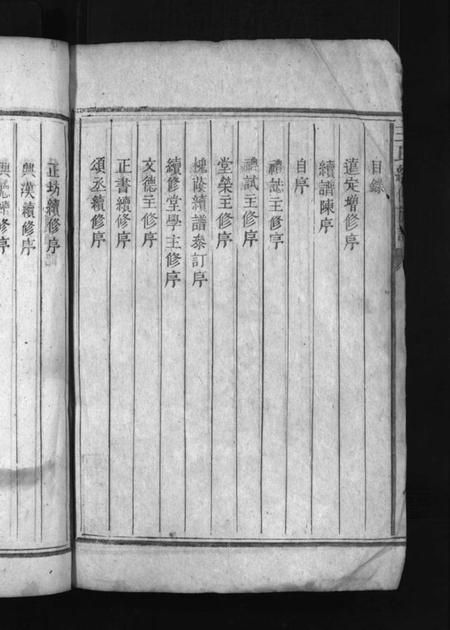 目錄
道定增修序
續譜陳序
自序
禮誌主修序
禮試主修序
堂榮主修序
槐蔭續譜叅訂序
續修堂學主修序
文德主修序
正書續修序
頌丞續修序
正坊續修序
興漢續修序
續修序